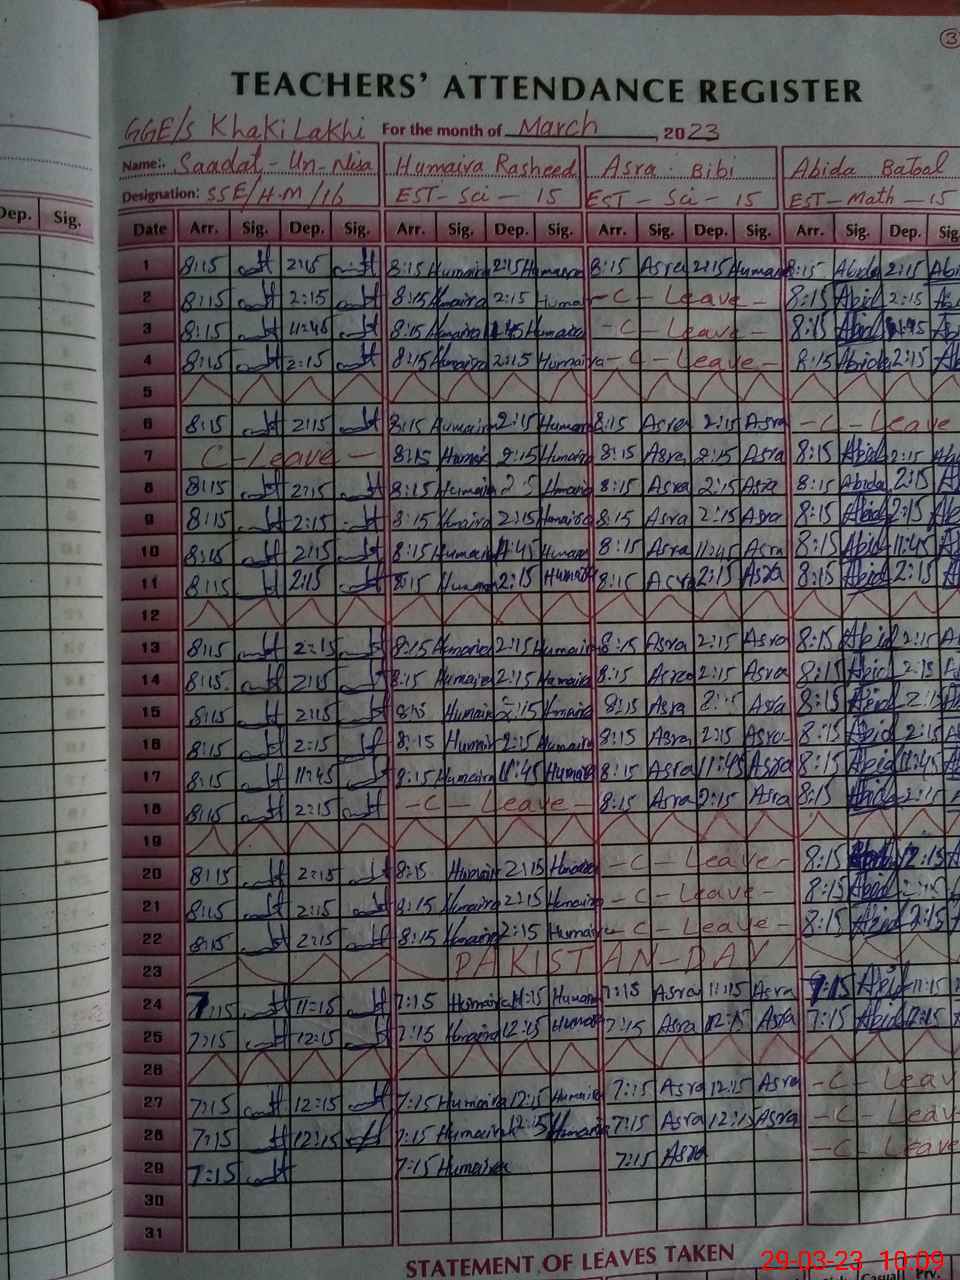 3
TEACHERS' ATTENDANCE REGISTER
GGE/S Khaki Lakhi For the month of March, 2023
Name: Saadat-Un-Nisa Humaira Rasheed Asra Bibi Abida Batool
Designation: SSE/H.M/16 EST-Sci-15 EST-Sci-15 EST-Math-15
Dep. Sig. Date Arr. Sig. Dep. Sig. Arr. Sig. Dep. Sig. Arr. Sig. Dep. Sig. Arr. Sig. Dep. Sig
1 8:15 2:15 8:15 Humaira 2:15 Humaira 8:15 Asra 2:15 Humaira 8:15 Abida 2:15 Abi
2 8:15 2:15 8:15 Humaira 2:15 Humai -C-Leave- 8:15 Abid 2:15
3 8:15 11:45 8:15 Humaira 11:45 Humaira -C-Leave- 8:15 Abid 11:45
4 8:15 2:15 8:15 Humaira 2:15 Humaira -C-Leave- 8:15 Abida 2:15 Ab
5
6 8:15 2:15 8:15 Humaira 2:15 Humaira 8:15 Asra 2:15 Asra -C-Leave
7 C-Leave- 8:15 Humair 2:15 Humaira 8:15 Asra 2:15 Asra 8:15 Abid 2:15
8 8:15 2:15 8:15 Humaira 2:15 Humaira 8:15 Asra 2:15 Asra 8:15 Abida 2:15
9 8:15 2:15 8:15 Humaira 2:15 Humaira 8:15 Asra 2:15 Asra 8:15 Abid 2:15
10 8:15 2:15 8:15 Humaira 11:45 Humaira 8:15 Asra 11:45 Asra 8:15 Abid 11:45
11 8:15 2:15 8:15 Humaira 2:15 Humaira 8:15 Asra 2:15 Asra 8:15 Abid 2:15
12
13 8:15 2:15 8:15 Humaira 2:15 Humaira 8:15 Asra 2:15 Asra 8:15 Abid 2:15
14 8:15 2:15 8:15 Humaira 2:15 Humaira 8:15 Asra 2:15 Asra 8:15 Abid 2:15
15 8:15 2:15 8:15 Humaira 2:15 Humaira 8:15 Asra 2:15 Asra 8:15 Abid 2:15
16 8:15 2:15 8:15 Humair 2:15 Humaira 8:15 Asra 2:15 Asra 8:15 Abid 2:15
17 8:15 11:45 8:15 Humaira 11:45 Humaira 8:15 Asra 11:45 Asra 8:15 Abid 11:45
18 8:15 2:15 -C-Leave- 8:15 Asra 2:15 Asra 8:15 Abida 2:15
19
20 8:15 2:15 8:15 Humair 2:15 Humaira -C-Leave- 8:15 12:15
21 8:15 2:15 8:15 Humaira 2:15 Humaira -C-Leave- 8:15 Abid 2:15
22 8:15 2:15 8:15 Humaira 2:15 Humaira -C-Leave- 8:15 Abid 2:15
23 PAKISTAN-DAY
24 7:15 11:15 7:15 Humaira 11:15 Humair 7:15 Asra 11:15 Asra 7:15 Abid 11:15
25 7:15 12:15 7:15 Humaira 12:15 Humair 7:15 Asra 12:15 Asra 7:15 Abid 12:15
26
27 7:15 12:15 7:15 Humaira 12:15 Humaira 7:15 Asra 12:15 Asra -C-Leav
28 7:15 12:15 7:15 Humaira 12:15 Humaira 7:15 Asra 12:15 Asra -C-Leav
29 7:15 7:15 Humaira 7:15 Asra -C-Leave
30
31
STATEMENT OF LEAVES TAKEN
29-03-23 10:09